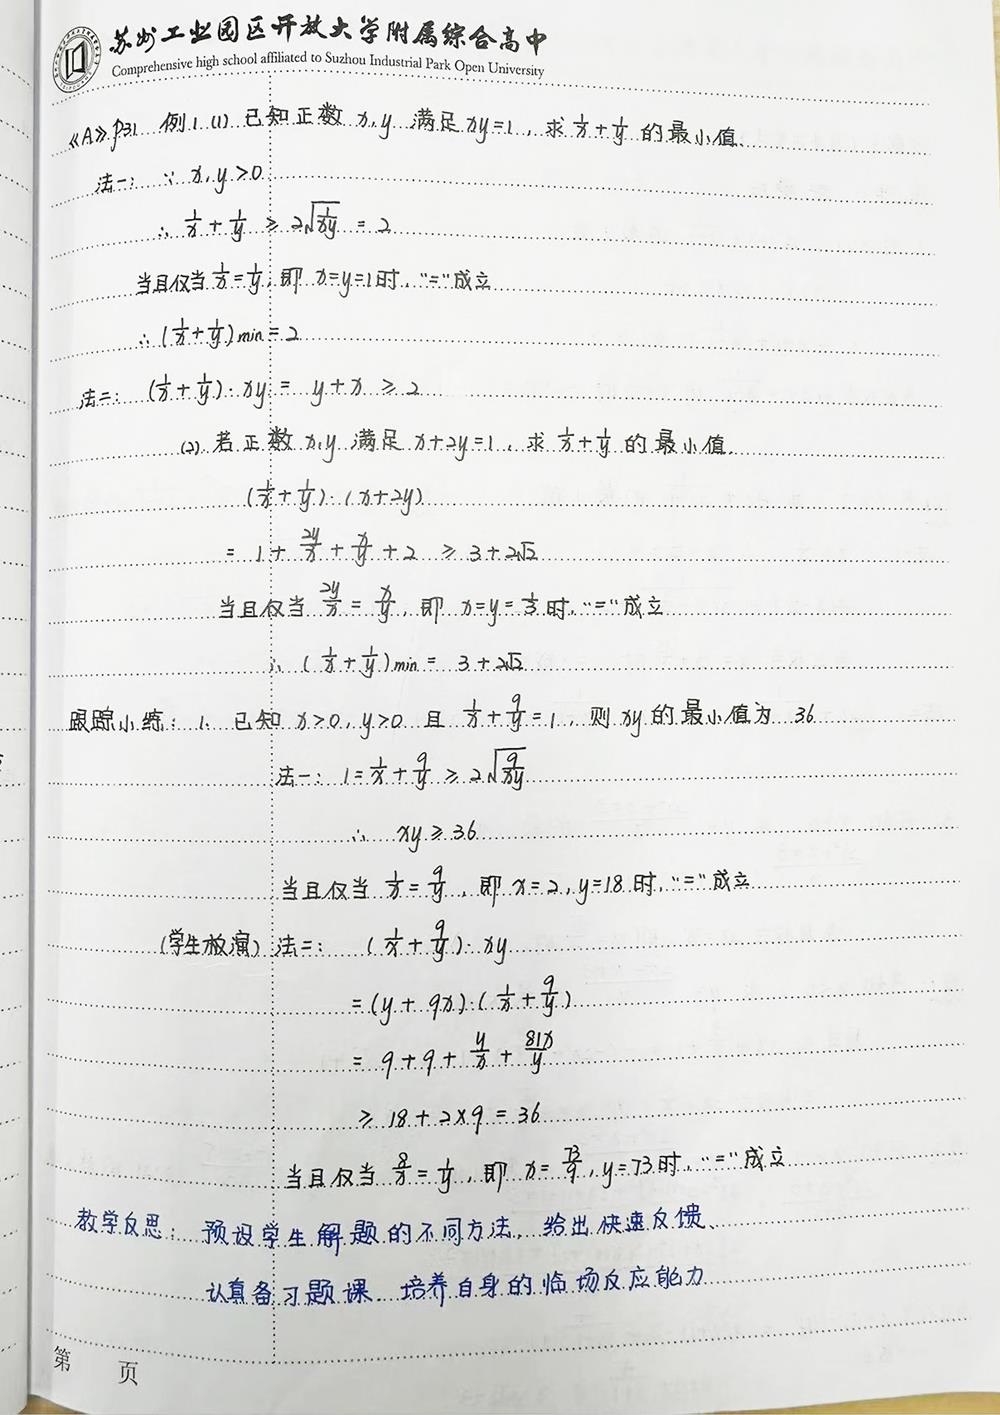 苏州工业园区开放大学附属综合高中
Comprehensive high school affiliated to Suzhou Industrial Park Open University
《A》P31 例1 (1) 已知正数 x,y 满足 xy=1，求 1/x+1/y 的最小值.
法一：∵ x,y>0
∴ 1/x+1/y ≥ 2√(1/xy) = 2
当且仅当 1/x=1/y，即 x=y=1时，"="成立
∴ (1/x+1/y)min = 2
法二：(1/x+1/y)·xy = y+x ≥ 2
(2) 若正数 x,y 满足 x+2y=1，求 1/x+1/y 的最小值.
(1/x+1/y)·(x+2y)
= 1+2y/x+x/y+2 ≥ 3+2√2
当且仅当 2y/x=x/y，即 x=y=1/3 时，"="成立
∴ (1/x+1/y)min = 3+2√2
跟踪小练：1. 已知 x>0,y>0 且 1/x+9/y=1，则 xy 的最小值为 36
法一：1=1/x+9/y ≥ 2√(9/xy)
∴ xy ≥ 36
当且仅当 1/x=9/y，即 x=2,y=18 时，"="成立
(学生板演) 法二：(1/x+9/y)·xy
=(y+9x)·(1/x+9/y)
= 9+9+y/x+81x/y
≥ 18+2×9=36
当且仅当 8/x=1/y，即 x=73/9,y=73时，"="成立
教学反思：预设学生解题的不同方法，给出快速反馈、
认真备习题课、培养自身的临场反应能力
第 页